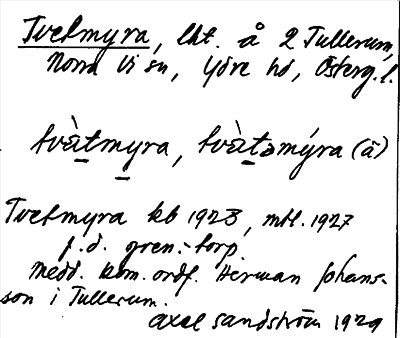 Tvetmyra, lht. å 2 Tullerum,
Norra Vi sn, Ydre hd, Österg. l.
tvàtmyra, tvàtəmýra (ä)
Tvetmyra kb 1923, mtl. 1927
f.d. gren.-torp.
Medd. kom. ordf. Herman Johans-
son i Tullerum.
Axel Sandström 1929